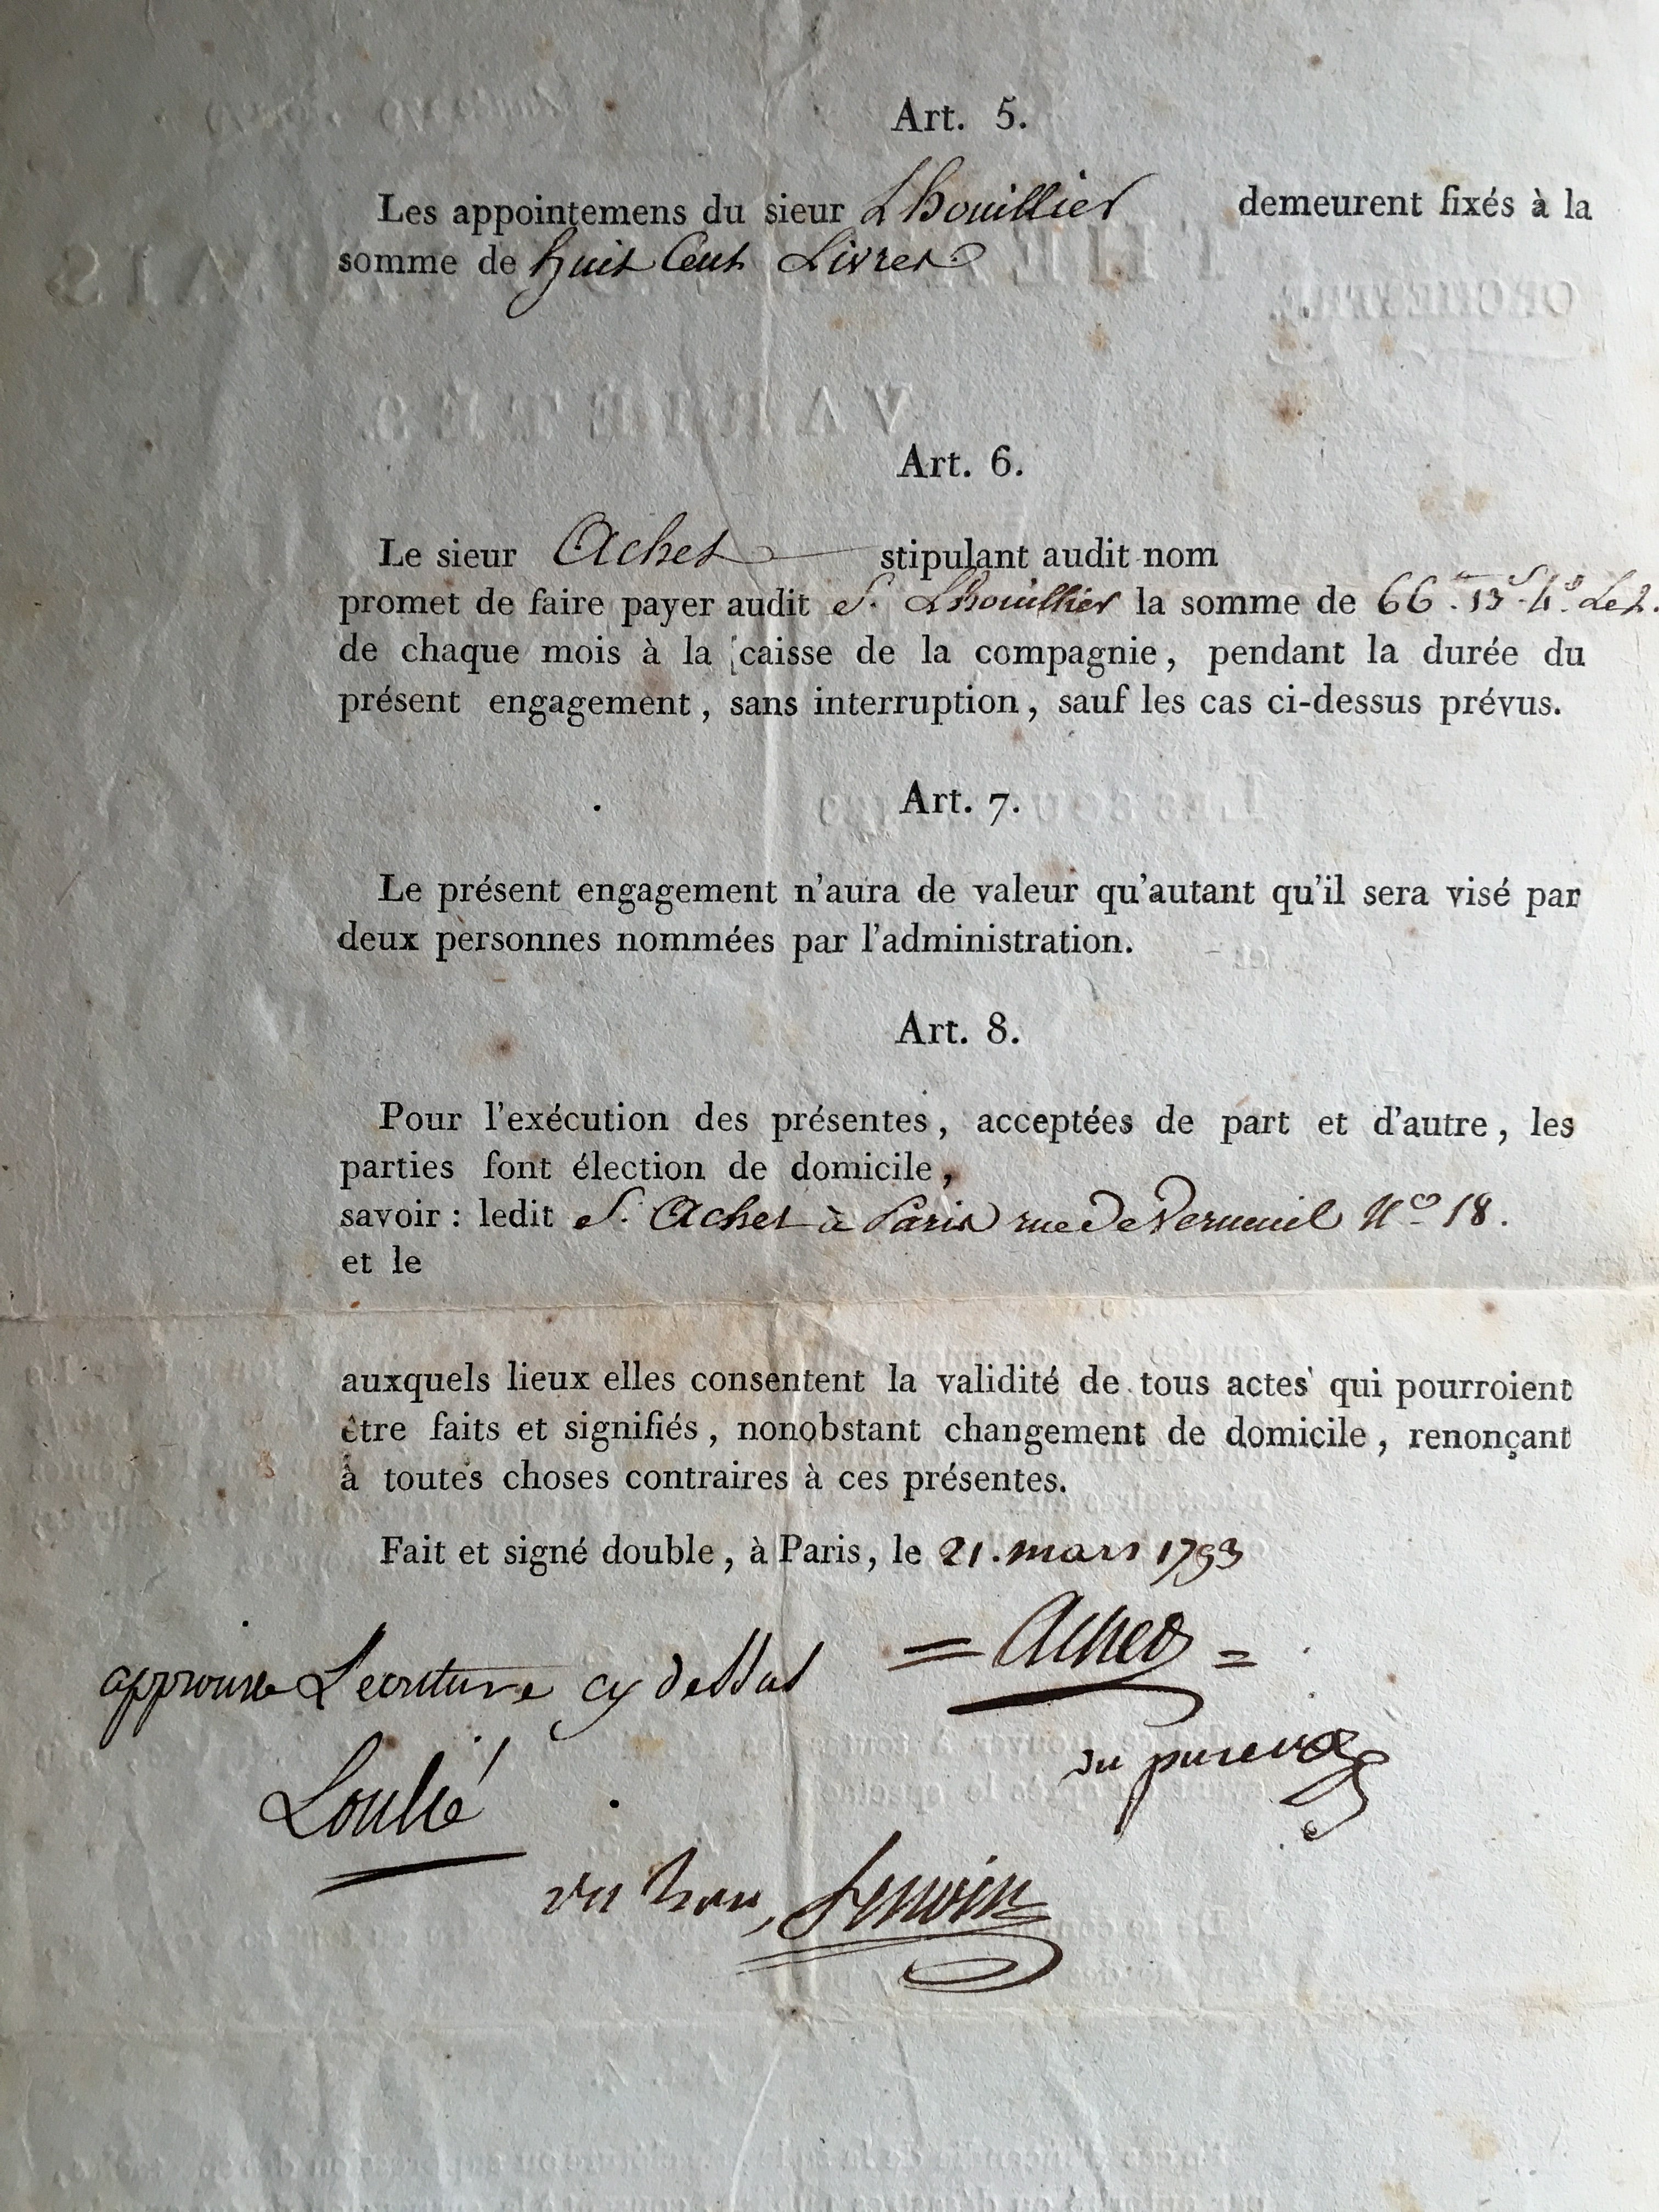 Art. 5.
Les appointemens du sieur Lhouillier demeurent fixés à la
somme de huit Cent Livres
Art. 6.
Le sieur Achet stipulant audit nom
promet de faire payer audit S. Lhouillier la somme de 66.tt 13.s 4.d Le 2.
de chaque mois à la caisse de la compagnie, pendant la durée du
présent engagement, sans interruption, sauf les cas ci-dessus prévus.
Art. 7.
Le présent engagement n'aura de valeur qu'autant qu'il sera visé par
deux personnes nommées par l'administration.
Art. 8.
Pour l'exécution des présentes, acceptées de part et d'autre, les
parties font élection de domicile,
savoir : ledit S. Achet à Paris rue de Verneuil No 18.
et le
auxquels lieux elles consentent la validité de tous actes qui pourroient
être faits et signifiés, nonobstant changement de domicile, renonçant
à toutes choses contraires à ces présentes.
Fait et signé double, à Paris, le 21. mars 1793
= Achet =
approuve L'ecriture cy dessus
Loulié
vu bon, Lenoir